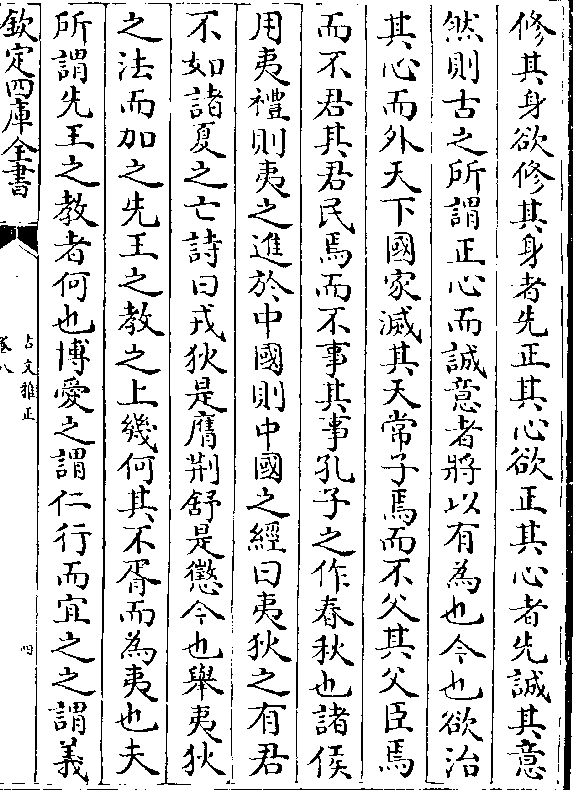 修其身欲修其身者先正其心欲正其心者先誠其意
然則古之所謂正心而誠意者將以有為也今也欲治
其心而外天下國家滅其天常子焉而不父其父臣焉
而不君其君民焉而不事其事孔子之作春秋也諸侯
用夷禮則夷之進於中國則中國之經曰夷狄之有君
不如諸夏之亡詩曰戎狄是膺荆舒是懲今也舉夷狄
之法而加之先王之教之上幾何其不胥而為夷也夫
所謂先王之教者何也博愛之謂仁行而宜之之謂義
欽定四庫全書
古文雅正
卷八
四